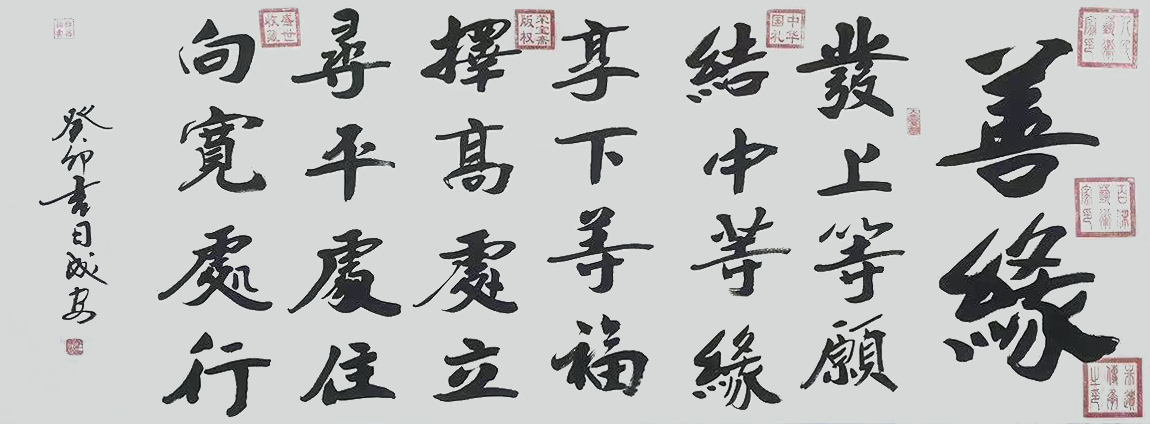 善緣
發上等願
結中等緣
享下等福
擇高處立
尋平處住
向寬處行
癸卯書日成安
中华国礼
荣宝斋版权
盛世收藏